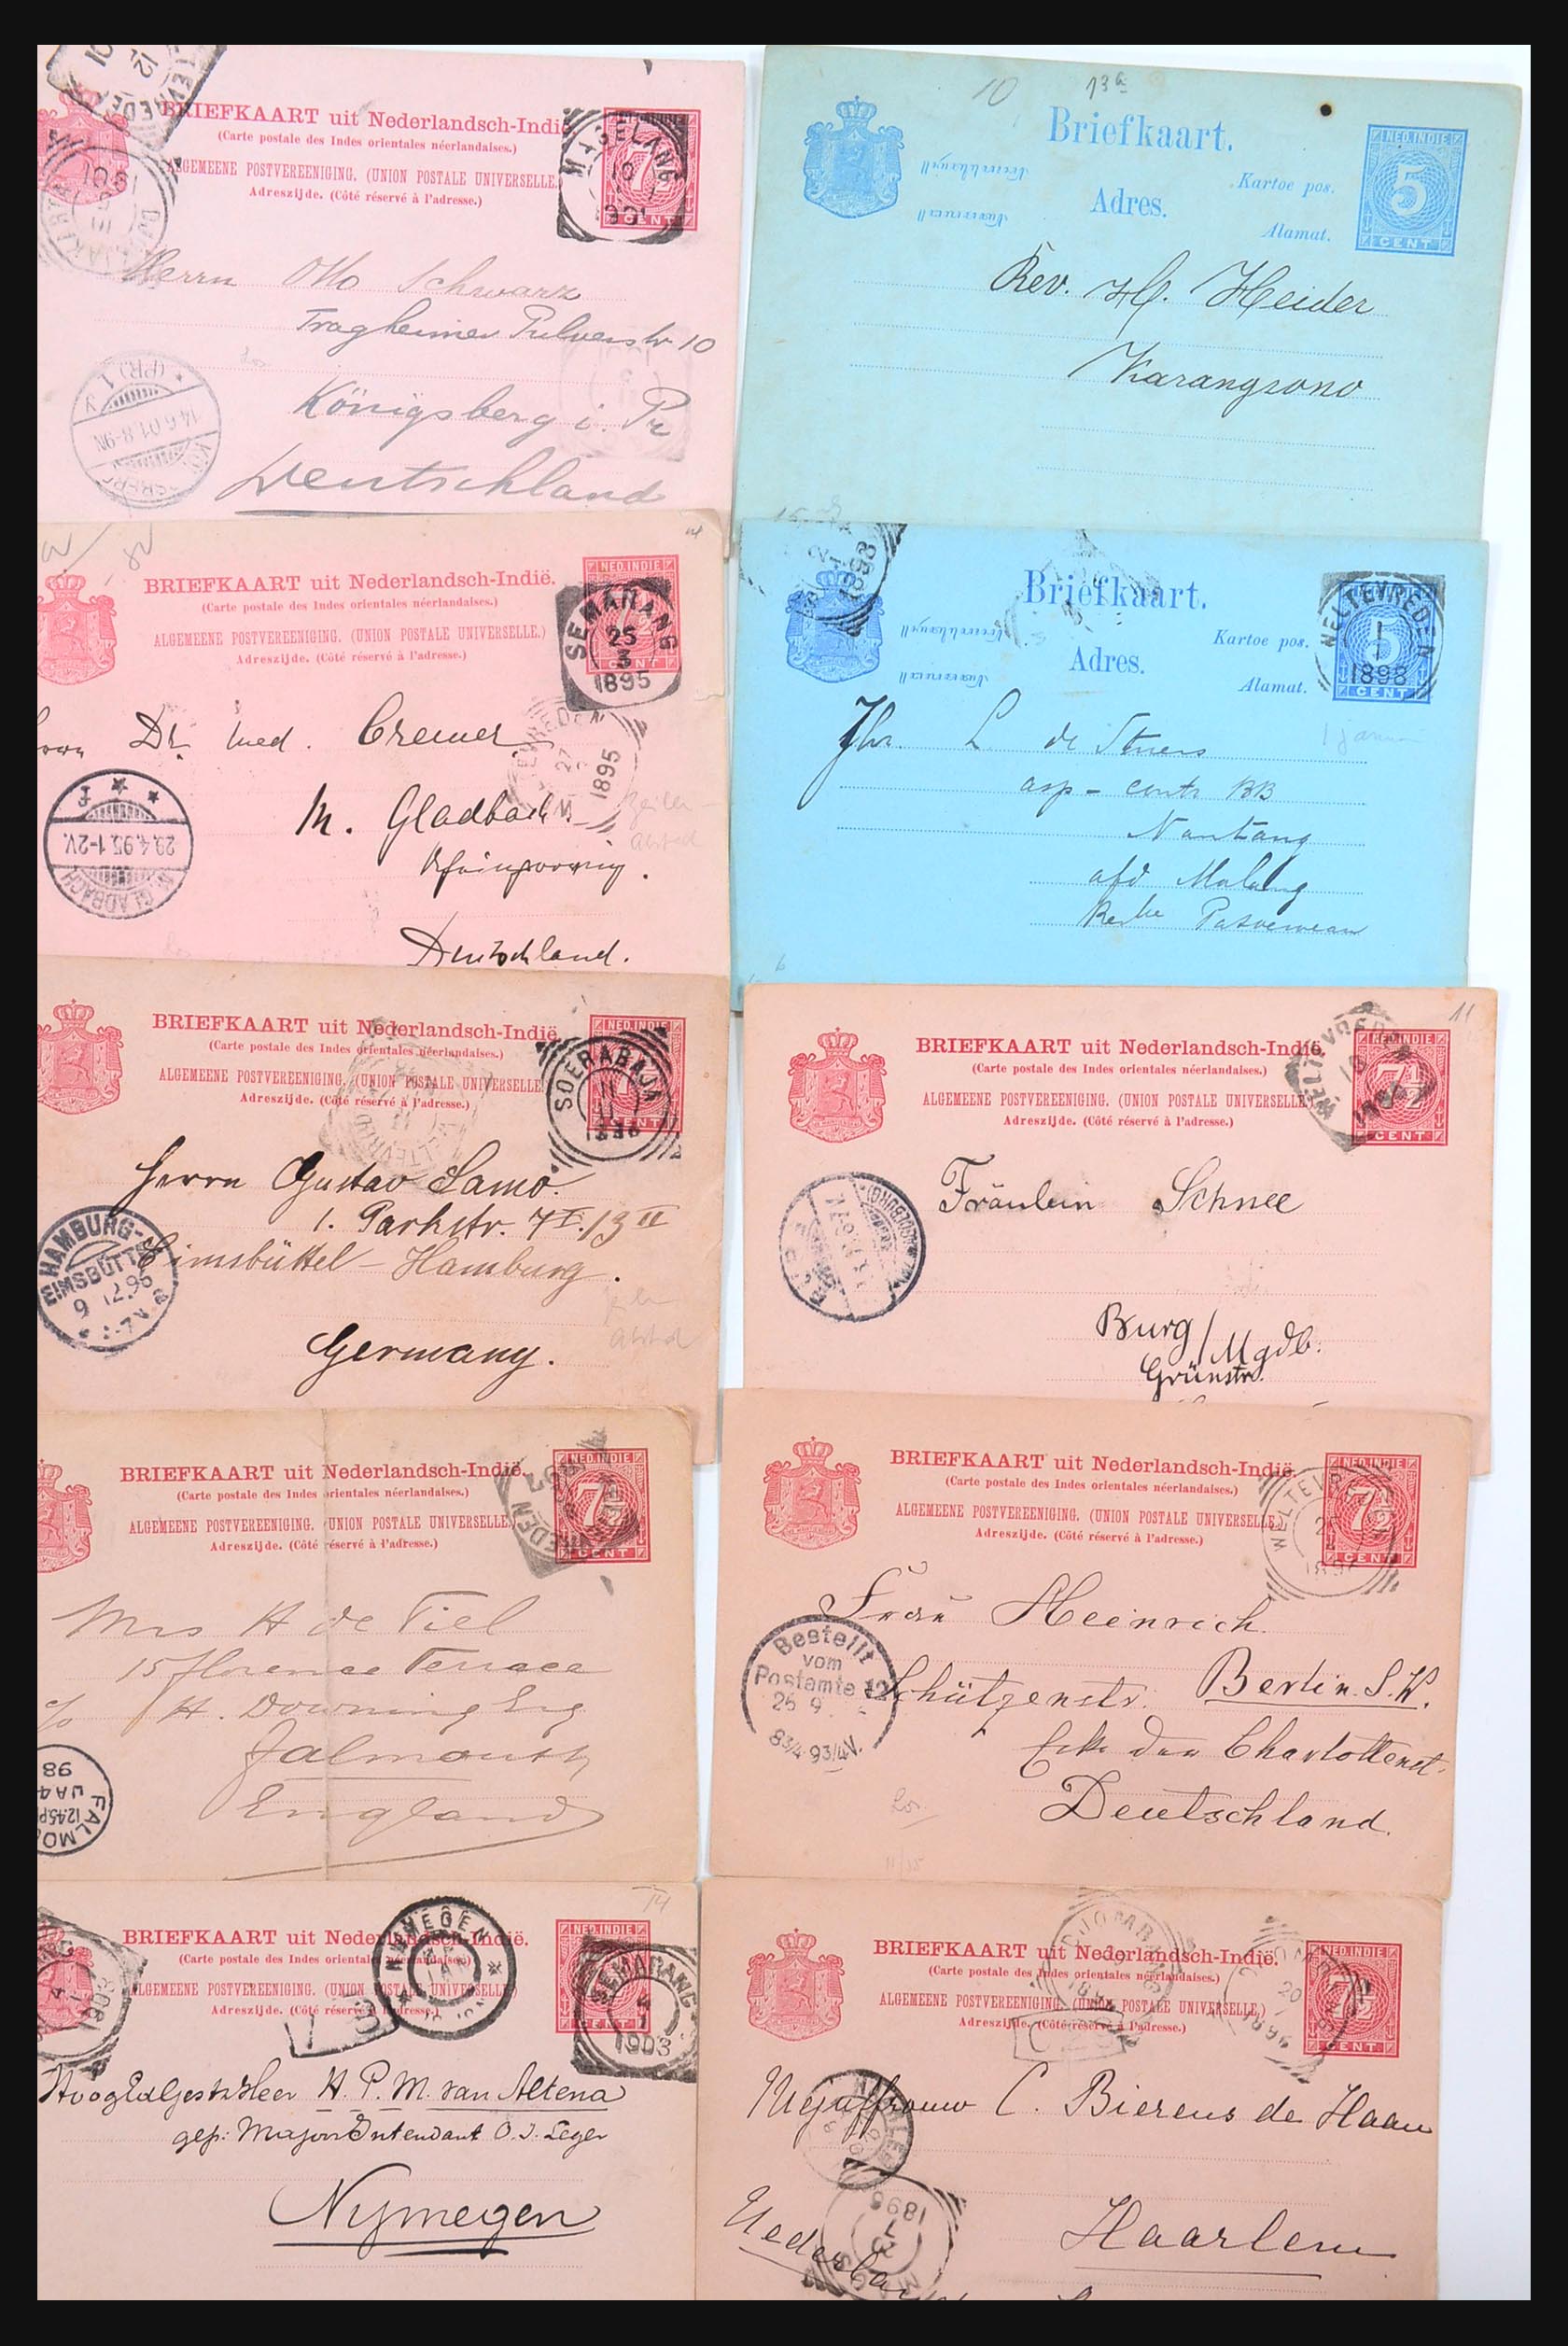 BRIEFKAART uit Nederlandsch-Indië
(Carte postale des Indes orientales néerlandaises.)
ALGEMEENE POSTVEREENIGING. (UNION POSTALE UNIVERSELLE.
Adreszijde. (Côté réservé à l'adresse.)
1901
7½
CENT
Herrn Otto Schwarz
Tragheimer Pulverstr 10
Königsberg i. Pr
14.6.01.8-9N
Deutschland
BRIEFKAART uit Nederlandsch-Indië.
(Carte postale des Indes orientales néerlandaises.)
ALGEMEENE POSTVEREENIGING. (UNION POSTALE UNIVERSELLE.)
Adreszijde. (Côté réservé à l'adresse.)
NED. INDIE
CENT
SEMARANG
25
3
1895
Dr. med. Cremer
M. Gladbach
29.4.95.1-2V.
M. GLADBACH
1895
Deutschland.
BRIEFKAART uit Nederlandsch-Indië.
(Carte postale des Indes orientales néerlandaises.)
ALGEMEENE POSTVEREENIGING. (UNION POSTALE UNIVERSELLE
Adreszijde. (Côté réservé à l'adresse.)
NED. INDIE
CENT
SOERABAJA
Herrn Gustav Lamo.
1. Parkstr. 7I./13 II
Eimsbüttel - Hamburg.
HAMBURG-
EIMSBÜTTEL
Germany.
BRIEFKAART uit Nederlandsch-Indië.
(Carte postale des Indes orientales néerlandaises.)
ALGEMEENE POSTVEREENIGING. (UNION POSTALE UNIVERSELLE.)
Adreszijde. (Côté réservé à l'adresse.)
NED. INDIE
7½
CENT
Mrs H de Tiel
15 Florence Terrace
c/o H. Downing Esq
Falmouth
England
FALMO
12.45P
JA 4
98
BRIEFKAART uit Nederlandsch-Indië.
(Carte postale des Indes orientales néerlandaises)
ALGEMEENE POSTVEREENIGING. (UNION POSTALE
Adreszijde. (Côté réservé à l'adresse.)
NIJMEGEN
NED. INDIE
SEMARANG
1903
HoogEdGestr Heer H. P. M. van Altena
gep: Majoor Intendant O. I. Leger
Nijmegen
10
13a
Briefkaart.
Adres.
Kartoe pos.
Alamat.
NED. INDIE
5
CENT
Rev. H. Heider
Karangsono
Briefkaart.
Adres.
Kartoe pos.
Alamat.
5
CENT
WELTEVREDEN
1
1
1898
1898
Jhr. L de Stuers
asp - contr BB
Nantang
afd Malang
Pasoeroean
11
BRIEFKAART uit Nederlandsch-Indië.
(Carte postale des Indes orientales néerlandaises.)
ALGEMEENE POSTVEREENIGING. (UNION POSTALE UNIVERSELLE.)
Adreszijde. (Côté réservé à l'adresse.)
WELTEVREDEN
NED. INDIE
7½
CENT
Fräulein Schnee
Burg / Mgdb.
Grünstr.
BRIEFKAART uit Nederlandsch-Indië.
(Carte postale des Indes orientales néerlandaises.)
ALGEMEENE POSTVEREENIGING. (UNION POSTALE UNIVERSELLE.
Adreszijde. (Côté réservé à l'adresse.)
WELTEVREDEN
NED. INDIE
7½
CENT
Frau Heinrich
Bestellt
vom
Postamte 12
25 9
8¾-9¾V.
Schützenstr. Berlin. S.W.
Ecke der Charlottenst.
Deutschland.
BRIEFKAART uit Nederlandsch-Indië.
(Carte postale des Indes orientales néerlandaises.)
ALGEMEENE POSTVEREENIGING. (UNION POSTALE UNIVERSELLE.)
Adreszijde. (Côté réservé à l'adresse.)
DJOMBANG
NED. INDIE
CENT
Mejuffrouw C. Bierens de Haan
1896
Haarlem